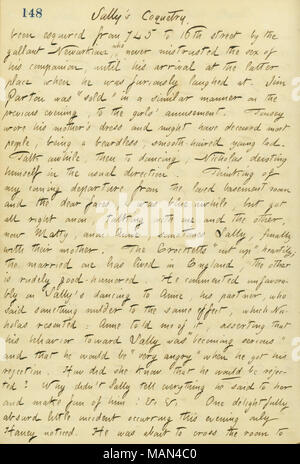 148
Sally's Coquetry.
been esquired from 745 to 16th street by the
gallant Newarkian, who never mistrusted the sex of
his companion, until his arrival at the latter
place when he was furiously laughed at. Jim
Parton was "sold" in a similar manner on the
previous evening, to the girls' amusement.
wore his mother's dress and might have deceived most
people, being a beardless, smooth-haired young lad.
Talk awhile, then to dancing, Nicholas devoting
himself in the usual direction. Thinking of
my coming departure from the loved basement room
and the dear faces I was blue awhile, but got
all right anon talking with one and the other,
now Matty, anon Anne, sometimes Sally, finally
with their mother. The "cut up" heartily,
the married one has lived in England, the other
is rudely good-humored. He commented unfavora-
bly on Sally's dancing to Anne his partner, who
said something milder to the same effect, which Ni-
cholas resented. Anne told me of it, asserting that
his behavior toward Sally was "becoming serious"
and that he would be "very angry" when he got his
rejection. How did she know that he would be rejec-
ted? Why didn't Sally tell everything he said to her
and make fun of him? &c &c. One delightfully
absurd little incident occurring this evening only
Haney noticed. He was about to cross the room to
alamy
Image ID: MAN4C0
www.alamy.com